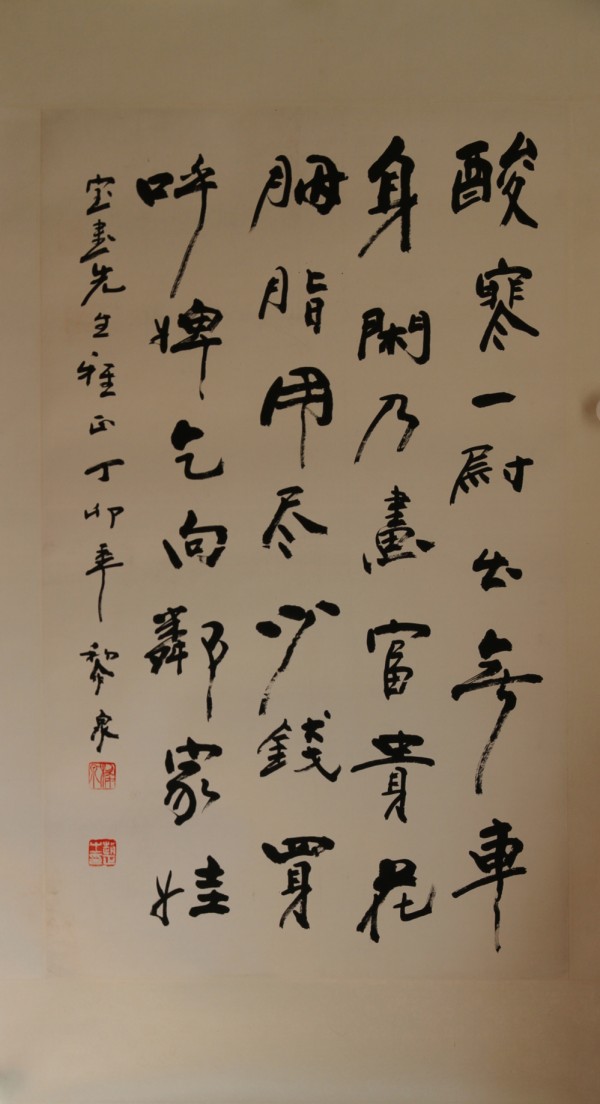 酸寒一尉出無車
身閑乃畫富貴花
胭脂用尽少錢買
呼婢乞向鄰家娃
宝画先生雅正丁卯年黎泉